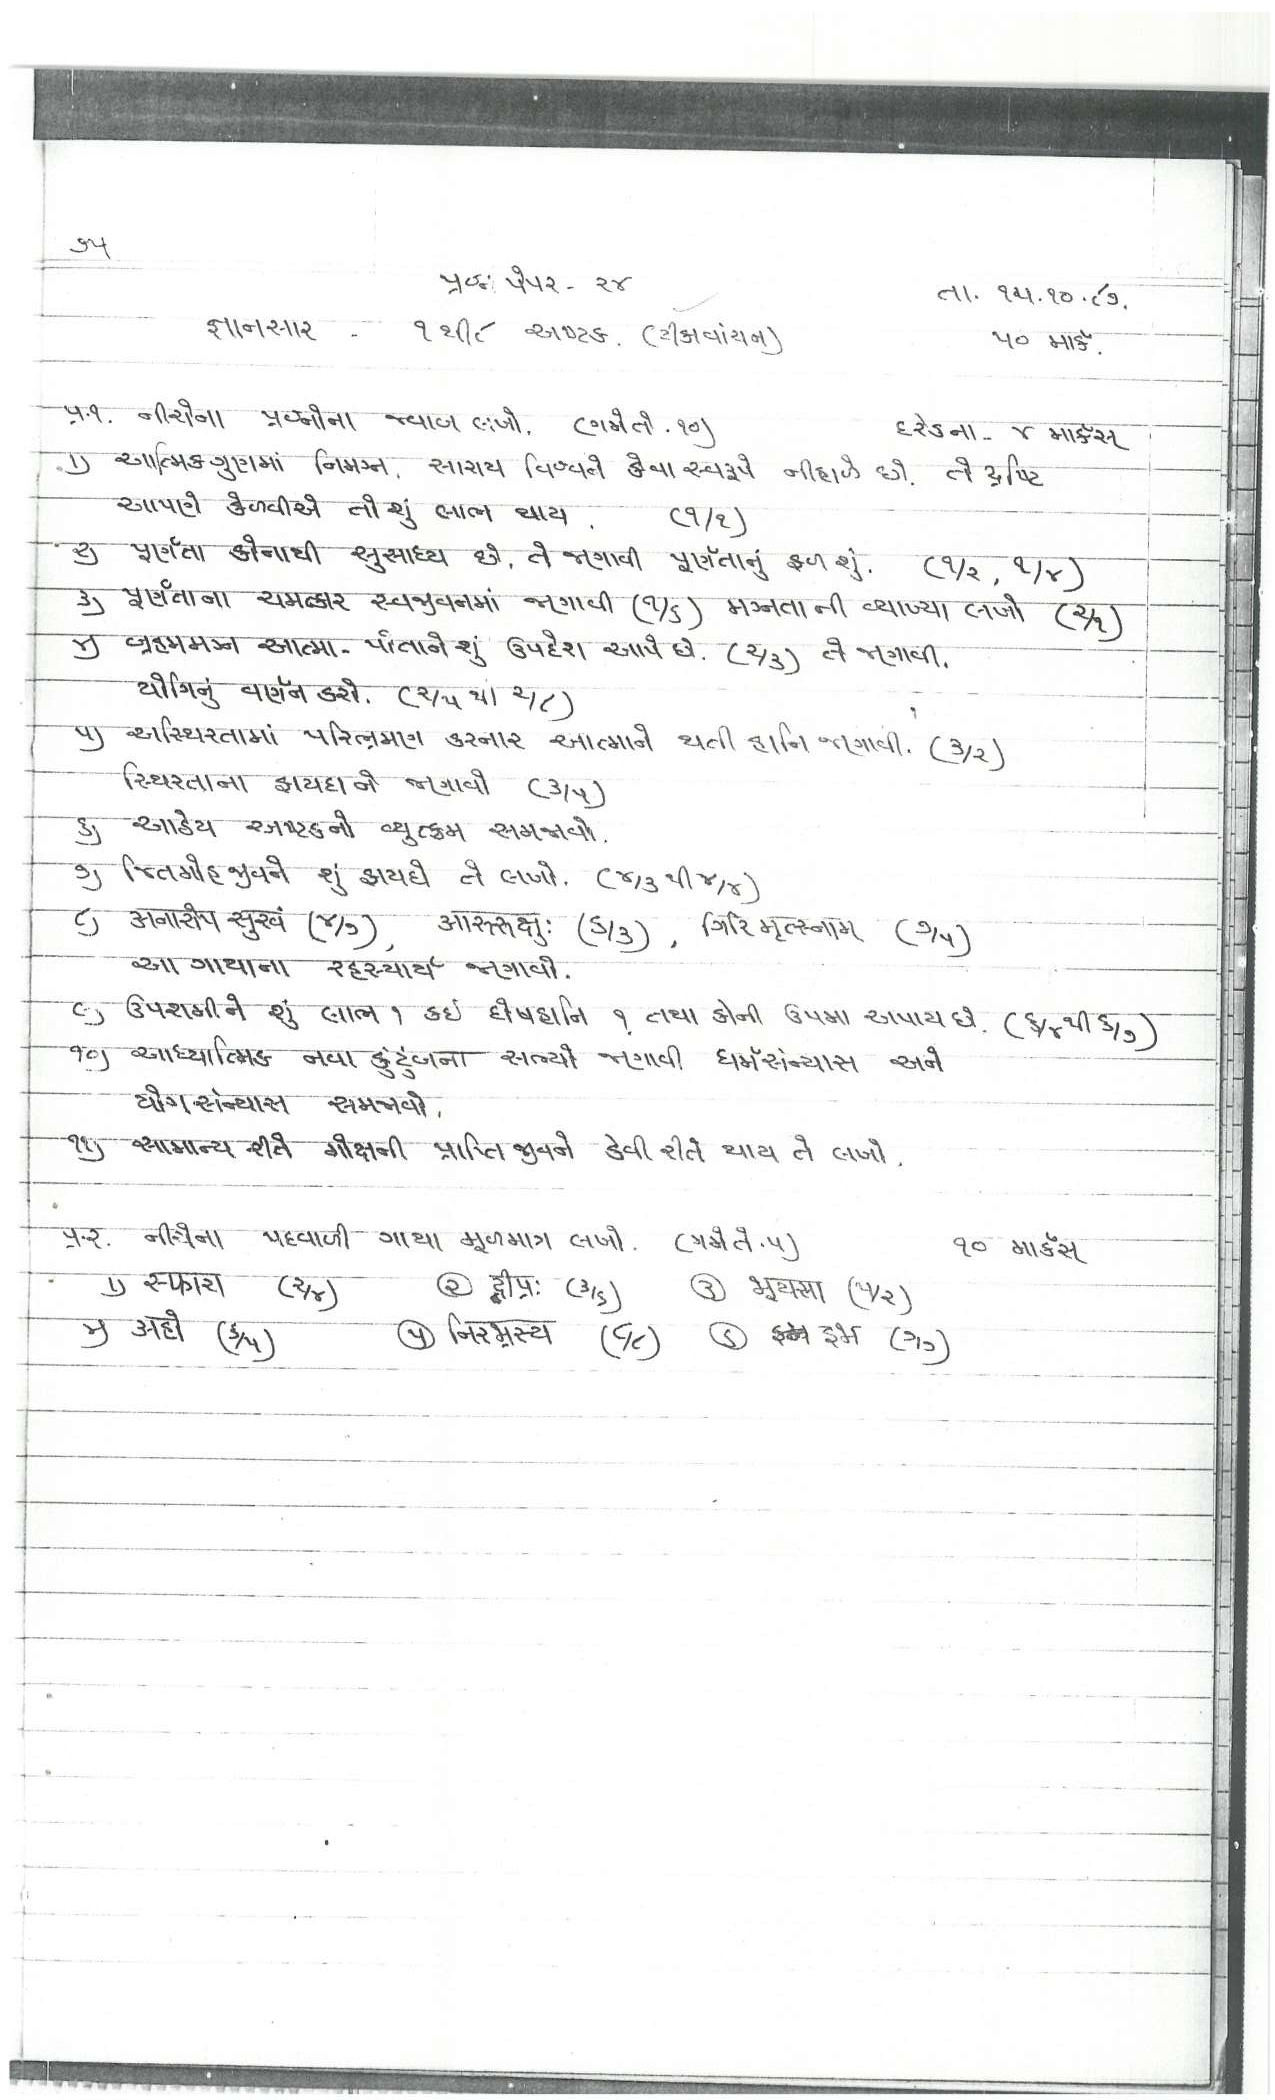 ૭૫
પ્રશ્ન પેપર - ૨૪
તા. ૧૫.૧૦.૮૭.
જ્ઞાનસાર - ૧ થી ૮ અષ્ટક. (ટીકાવાંચન)
૫૦ માર્ક.
પ્ર.૧. નીચેના પ્રશ્નોના જવાબ લખો. (ગમેતે.૧૦) દરેકના - ૪ માર્કસ
૧) આત્મિકગુણમાં નિમગ્ન, સારાય વિશ્વને કેવા સ્વરૂપે નીહાળે છે. તે દ્રષ્ટિ
આપણે કેળવીએ તો શું લાભ થાય. (૧/૧)
૨) પૂર્ણતા કોનાથી સુસાધ્ય છે, તે જણાવી પૂર્ણતાનું ફળ શું. (૧/૨, ૧/૪)
૩) પૂર્ણતાના ચમત્કાર સ્વજીવનમાં જણાવી (૧/૬) મગ્નતાની વ્યાખ્યા લખો (૨/૧)
૪) બ્રહ્મમગ્ન આત્મા - પોતાને શું ઉપદેશ આપે છે. (૨/૩) તે જણાવી.
યોગિનું વર્ણન કરો. (૨/૫ થી ૨/૮)
૫) અસ્થિરતામાં પરિભ્રમણ કરનાર આત્માને થતી હાનિ જણાવી. (૩/૨)
સ્થિરતાના ફાયદાને જણાવો (૩/૫)
૬) આઠેય અષ્ટકનો વ્યુત્ક્રમ સમજાવો.
૭) જિતમોહ જીવને શું ફાયદો તે લખો. (૪/૩ થી ૪/૪)
૮) अनारोप सुखं (૪/૭), आरुरुक्षुः (૬/૩), गिरिमृत्स्नाम् (૭/૫)
આ ગાથાના રહસ્યાર્થ જણાવો.
૯) ઉપશમીને શું લાભ ? કઇ દોષહાનિ ? તથા કોની ઉપમા અપાય છે. (૬/૪ થી ૬/૭)
૧૦) આધ્યાત્મિક નવા કુટુંબના સભ્યો જણાવી ધર્મસંન્યાસ અને
યોગસંન્યાસ સમજાવો.
૧૧) સામાન્ય રીતે મોક્ષની પ્રાપ્તિ જીવને કેવી રીતે થાય તે લખો.
પ્ર.૨. નીચેના પદવાળી ગાથા મૂળમાત્ર લખો. (ગમે તે.૫) ૧૦ માર્કસ
૧) स्फारा (૨/૪) ૨ द्वीप्रः (૩/૬) ૩ भूयसा (૫/૨)
૪) अहो (૬/૫) ૫ निरभ्रस्य (૮/૮) ૬ (૭/૭)